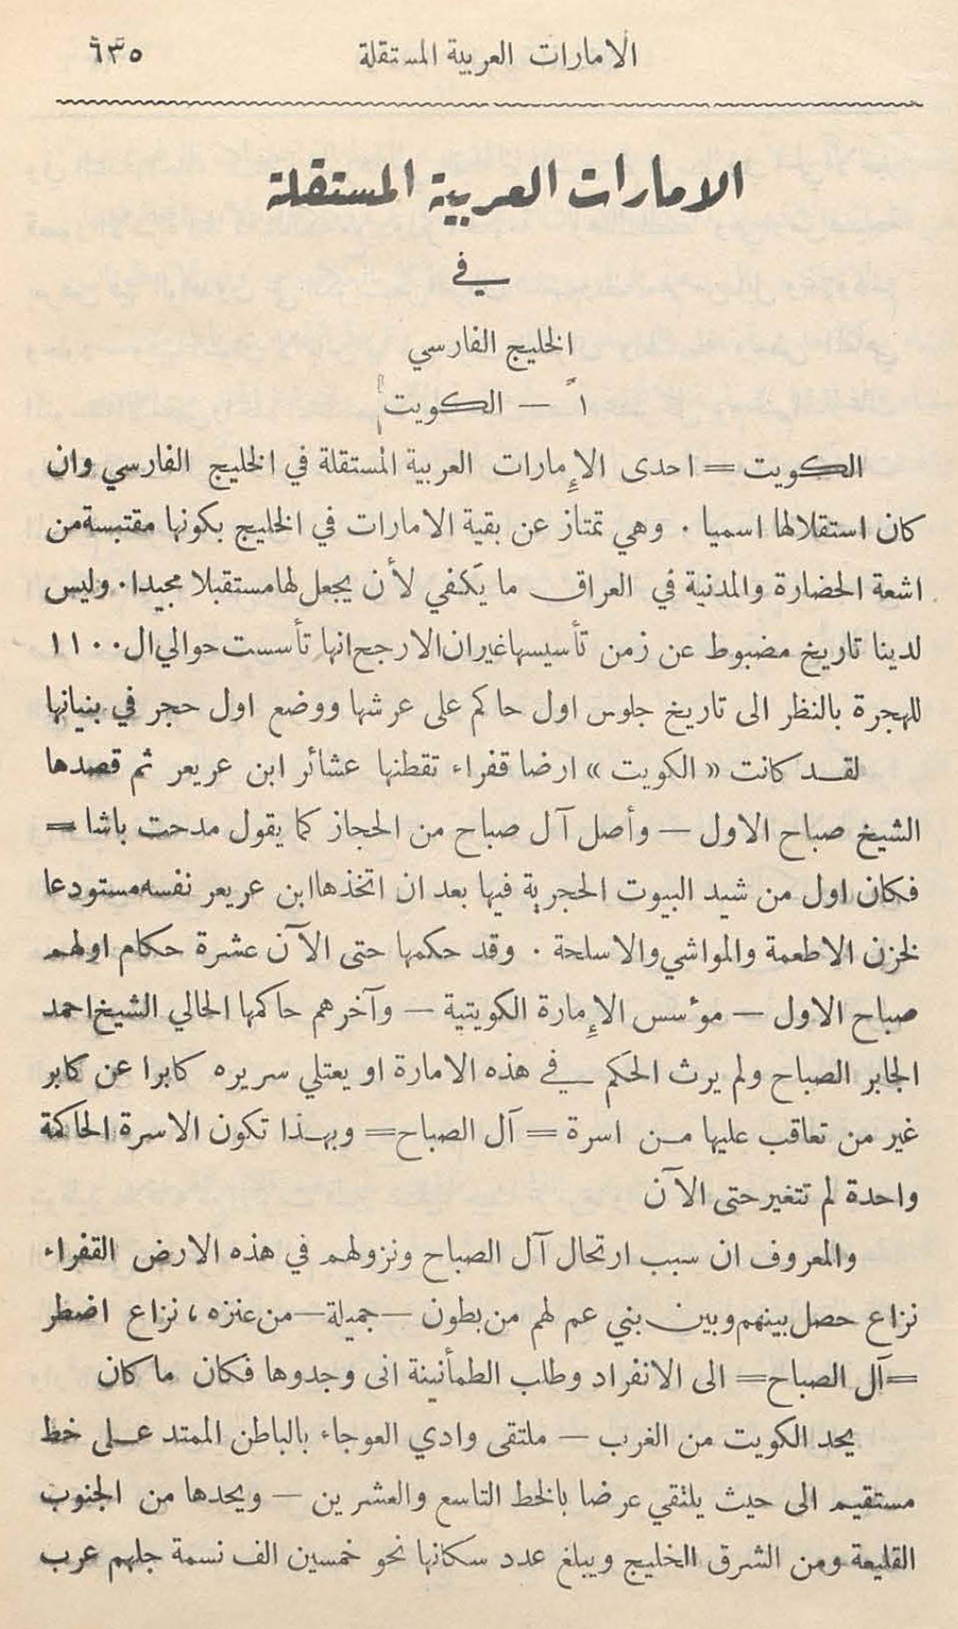 الامارات العربية المستقلة ٦٣٥
الامارات العربية المستقلة
في
الخليج الفارسي
١ً — الكويت
الكويت = احدى الإمارات العربية المستقلة في الخليج الفارسي وان
كان استقلالها اسميا . وهي تمتاز عن بقية الامارات في الخليج بكونها مقتبسة من
اشعة الحضارة والمدنية في العراق ما يكفي لأن يجعل لها مستقبلا مجيدا . وليس
لدينا تاريخ مضبوط عن زمن تأسيسها غير ان الارجح انها تأسست حوالي ال ١١٠٠
للهجرة بالنظر الى تاريخ جلوس اول حاكم على عرشها ووضع اول حجر في بنيانها
لقد كانت « الكويت » ارضا قفراء تقطنها عشائر ابن عريعر ثم قصدها
الشيخ صباح الاول — وأصل آل صباح من الحجاز كما يقول مدحت باشا =
فكان اول من شيد البيوت الحجرية فيها بعد ان اتخذها ابن عريعر نفسه مستودعا
لخزن الاطعمة والمواشي والاسلحة . وقد حكمها حتى الآن عشرة حكام اولهم
صباح الاول — مؤسس الإمارة الكويتية — وآخرهم حاكمها الحالي الشيخ احمد
الجابر الصباح ولم يرث الحكم في هذه الامارة او يعتلي سريره كابرا عن كابر
غير من تعاقب عليها من اسرة = آل الصباح = وبهذا تكون الاسرة الحاكمة
واحدة لم تتغير حتى الآن
والمعروف ان سبب ارتحال آل الصباح ونزولهم في هذه الارض القفراء
نزاع حصل بينهم وبين بني عم لهم من بطون — جميلة — من عنزه ، نزاع اضطر
= آل الصباح = الى الانفراد وطلب الطمأنينة انى وجدوها فكان ما كان
يحد الكويت من الغرب — ملتقى وادي العوجاء بالباطن الممتد على خط
مستقيم الى حيث يلتقي عرضا بالخط التاسع والعشرين — ويحدها من الجنوب
القليعة ومن الشرق الخليج ويبلغ عدد سكانها نحو خمسين الف نسمة جلهم عرب